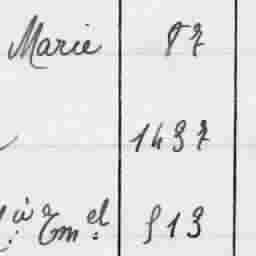 Marie 87
1437
à Em el 513